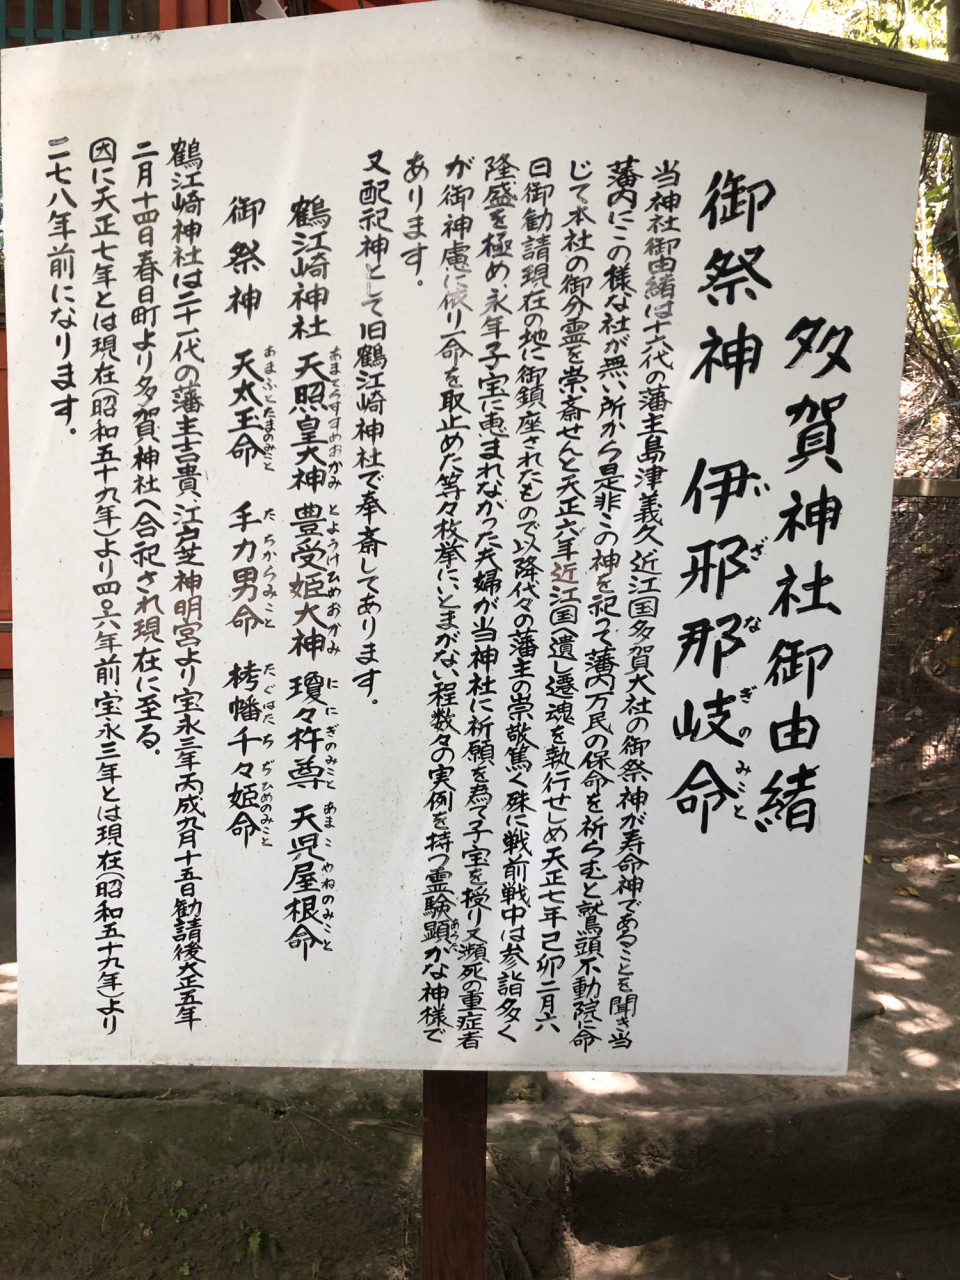 多賀神社御由緒
御祭神 伊邪那岐命
いざなぎのみこと
当神社御由緒は十六代の藩主島津義久近江国多賀大社の御祭神が寿命神であることを聞き当
藩内にこの様な社が無い所から是非この神を祀って藩内万民の保命を祈らむと鷲頭不動院に命
じて本社の御分霊を崇斎せんと天正六年近江国へ遺し遷魂を執行せしめ天正七年己卯二月六
日御勧請現在の地に御鎮座されたもので以降代々の藩主の崇敬篤く殊に戦前戦中は参詣多く
隆盛を極め、永年子宝に恵まれなかった夫婦が当神社に祈願を為て子宝を授り又瀕死の重症者
が御神慮に依り一命を取止めた等々枚挙にいとまがない程数々の実例を持つ霊験顕かな神様で
あらた
あります。
又配祀神として旧鶴江崎神社で奉斎してあります。
鶴江崎神社 天照皇大神 豊受姫大神 瓊々杵尊 天児屋根命
あまてらすすめおかみ とようけひめおおかみ ににぎのみこと あまこやねのみこと
御祭神 天太玉命 手力男命 栲幡千々姫命
あまふとたまのみこと たちからみこと たくはたちぢひめのみこと
鶴江崎神社は二十一代の藩主吉貴、江戸芝神明宮より宝永三年丙戌九月十五日勧請後大正五年
二月十四日春日町より多賀神社へ合祀され現在に至る。
因に天正七年とは現在(昭和五十九年)より四〇六年前、宝永三年とは現在(昭和五十九年)より
二七八年前になります。